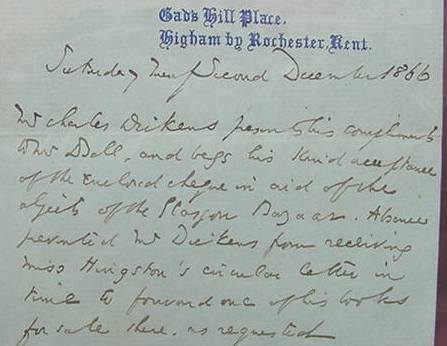 Gad's Hill Place,
Higham by Rochester, Kent.
Saturday Second December 1866
Mr Charles Dickens presents his compliments
to Mr Dell, and begs his kind acceptance
of the enclosed cheque in aid of the
objects of the Glasgow Bazaar. Absence
prevented Mr Dickens from receiving
Miss Hingston's circular letter in
time to forward one of his books
for sale there, as requested